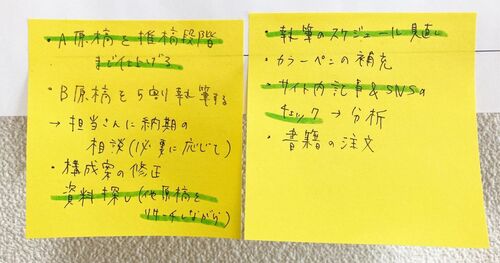 ・A原稿を推稿段階
まで仕上げる
・B原稿を5割執筆する
→担当さんに納期の
相談(必要に応じて)
・構成案の修正
資料探し(他原稿を
リサーチしながら)
・執筆のスケジュール見直し
・カラーペンの補充
・サイト内記事&SNSの
チェック→分析
・書籍の注文